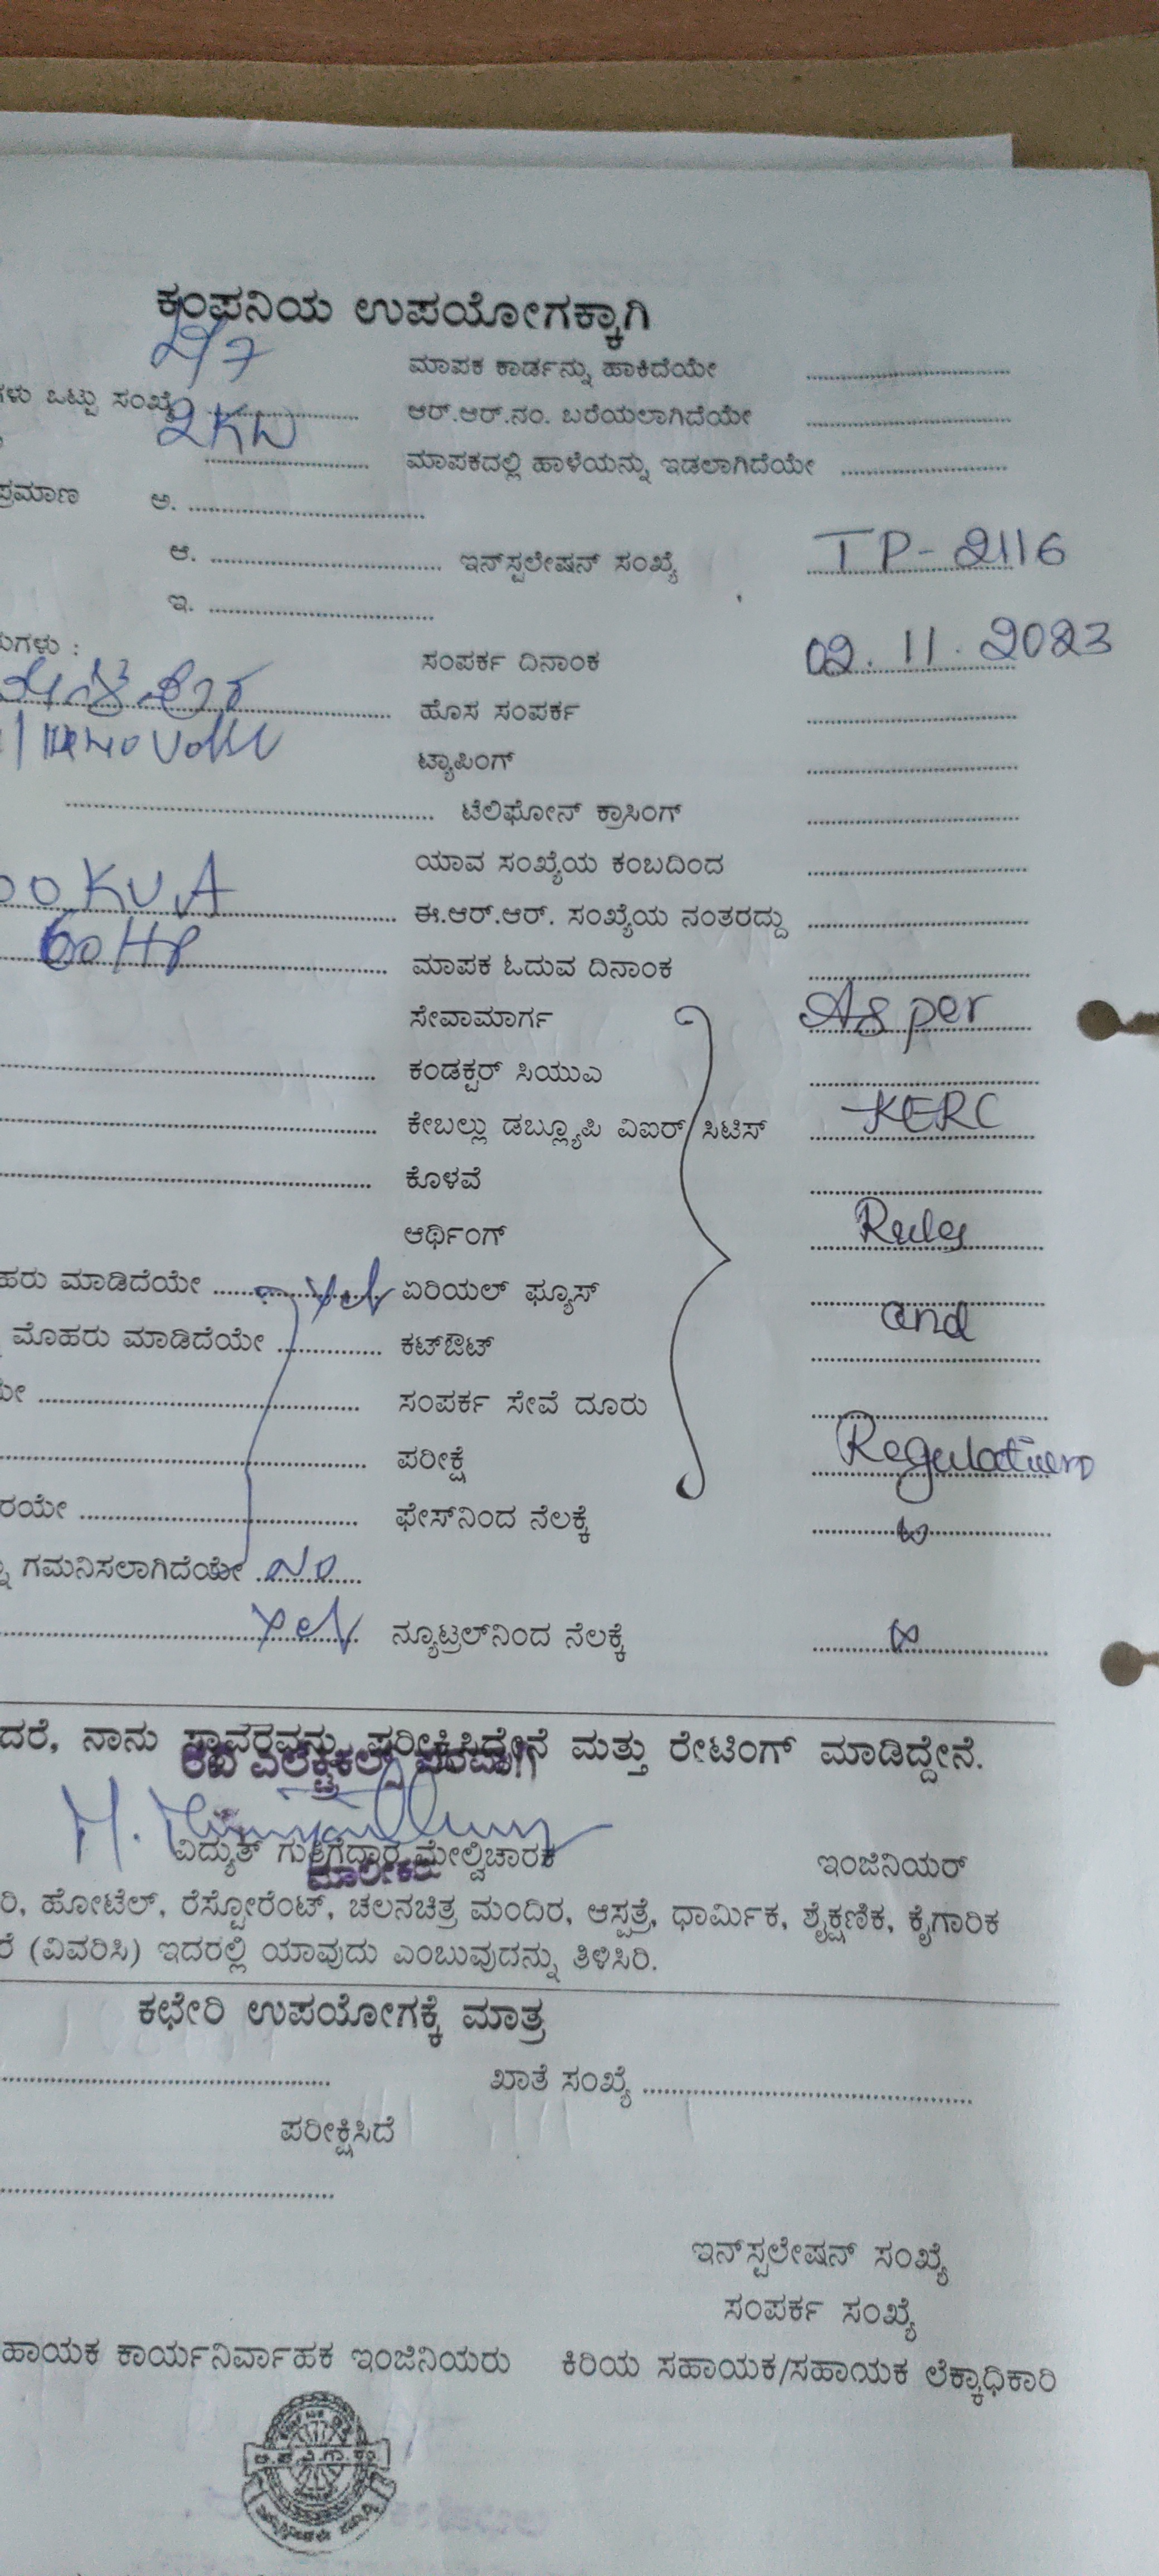 ಕಂಪನಿಯ ಉಪಯೋಗಕ್ಕಾಗಿ
ಮಾಪಕ ಕಾರ್ಡನ್ನು ಹಾಕಿದೆಯೇ
ಗಳು ಒಟ್ಟು ಸಂಖ್ಯೆ ಆರ್.ಆರ್.ನಂ. ಬರೆಯಲಾಗಿದೆಯೇ
2KW ಮಾಪಕದಲ್ಲಿ ಹಾಳೆಯನ್ನು ಇಡಲಾಗಿದೆಯೇ
ಪ್ರಮಾಣ ಅ.
ಆ. ಇನ್‌ಸ್ಟಲೇಷನ್ ಸಂಖ್ಯೆ TP-2116
ಇ.
ಗಳು : ಸಂಪರ್ಕ ದಿನಾಂಕ 02.11.2023
ಹೊಸ ಸಂಪರ್ಕ
ಟ್ಯಾಪಿಂಗ್
ಟೆಲಿಫೋನ್ ಕ್ರಾಸಿಂಗ್
ಯಾವ ಸಂಖ್ಯೆಯ ಕಂಬದಿಂದ
00KVA ಈ.ಆರ್.ಆರ್. ಸಂಖ್ಯೆಯ ನಂತರದ್ದು
60HP ಮಾಪಕ ಓದುವ ದಿನಾಂಕ
ಸೇವಾಮಾರ್ಗ As per
ಕಂಡಕ್ಟರ್ ಸಿಯುಎ
ಕೇಬಲ್ಲು ಡಬ್ಲ್ಯೂಪಿ ವಿಐರ್ ಸಿಟಿಸ್ KERC
ಕೊಳವೆ
ಆರ್ಥಿಂಗ್ Rules
ಹರು ಮಾಡಿದೆಯೇ Yes ಏರಿಯಲ್ ಫ್ಯೂಸ್
ಮೊಹರು ಮಾಡಿದೆಯೇ ಕಟ್‌ಔಟ್ and
ಯೇ ಸಂಪರ್ಕ ಸೇವೆ ದೂರು
ಪರೀಕ್ಷೆ Regulation
ರಯೇ ಫೇಸ್‌ನಿಂದ ನೆಲಕ್ಕೆ ∞
ಗಮನಿಸಲಾಗಿದೆಯೇ No
Yes ನ್ಯೂಟ್ರಲ್‌ನಿಂದ ನೆಲಕ್ಕೆ ∞
ದರೆ, ನಾನು ಸ್ಥಾವರವನ್ನು ಪರೀಕ್ಷಿಸಿದ್ದೇನೆ ಮತ್ತು ರೇಟಿಂಗ್ ಮಾಡಿದ್ದೇನೆ.
ವಿದ್ಯುತ್ ಗುತ್ತಿಗೆದಾರ ಮೇಲ್ವಿಚಾರಕ ಇಂಜಿನಿಯರ್
ಮಾಲೀಕರು
ರಿ, ಹೋಟೆಲ್, ರೆಸ್ಟೋರೆಂಟ್, ಚಲನಚಿತ್ರ ಮಂದಿರ, ಆಸ್ಪತ್ರೆ, ಧಾರ್ಮಿಕ, ಶೈಕ್ಷಣಿಕ, ಕೈಗಾರಿಕ
ರೆ (ವಿವರಿಸಿ) ಇದರಲ್ಲಿ ಯಾವುದು ಎಂಬುವುದನ್ನು ತಿಳಿಸಿರಿ.
ಕಛೇರಿ ಉಪಯೋಗಕ್ಕೆ ಮಾತ್ರ
ಖಾತೆ ಸಂಖ್ಯೆ
ಪರೀಕ್ಷಿಸಿದೆ
ಇನ್‌ಸ್ಟಲೇಷನ್ ಸಂಖ್ಯೆ
ಸಂಪರ್ಕ ಸಂಖ್ಯೆ
ಹಾಯಕ ಕಾರ್ಯನಿರ್ವಾಹಕ ಇಂಜಿನಿಯರು ಕಿರಿಯ ಸಹಾಯಕ/ಸಹಾಯಕ ಲೆಕ್ಕಾಧಿಕಾರಿ